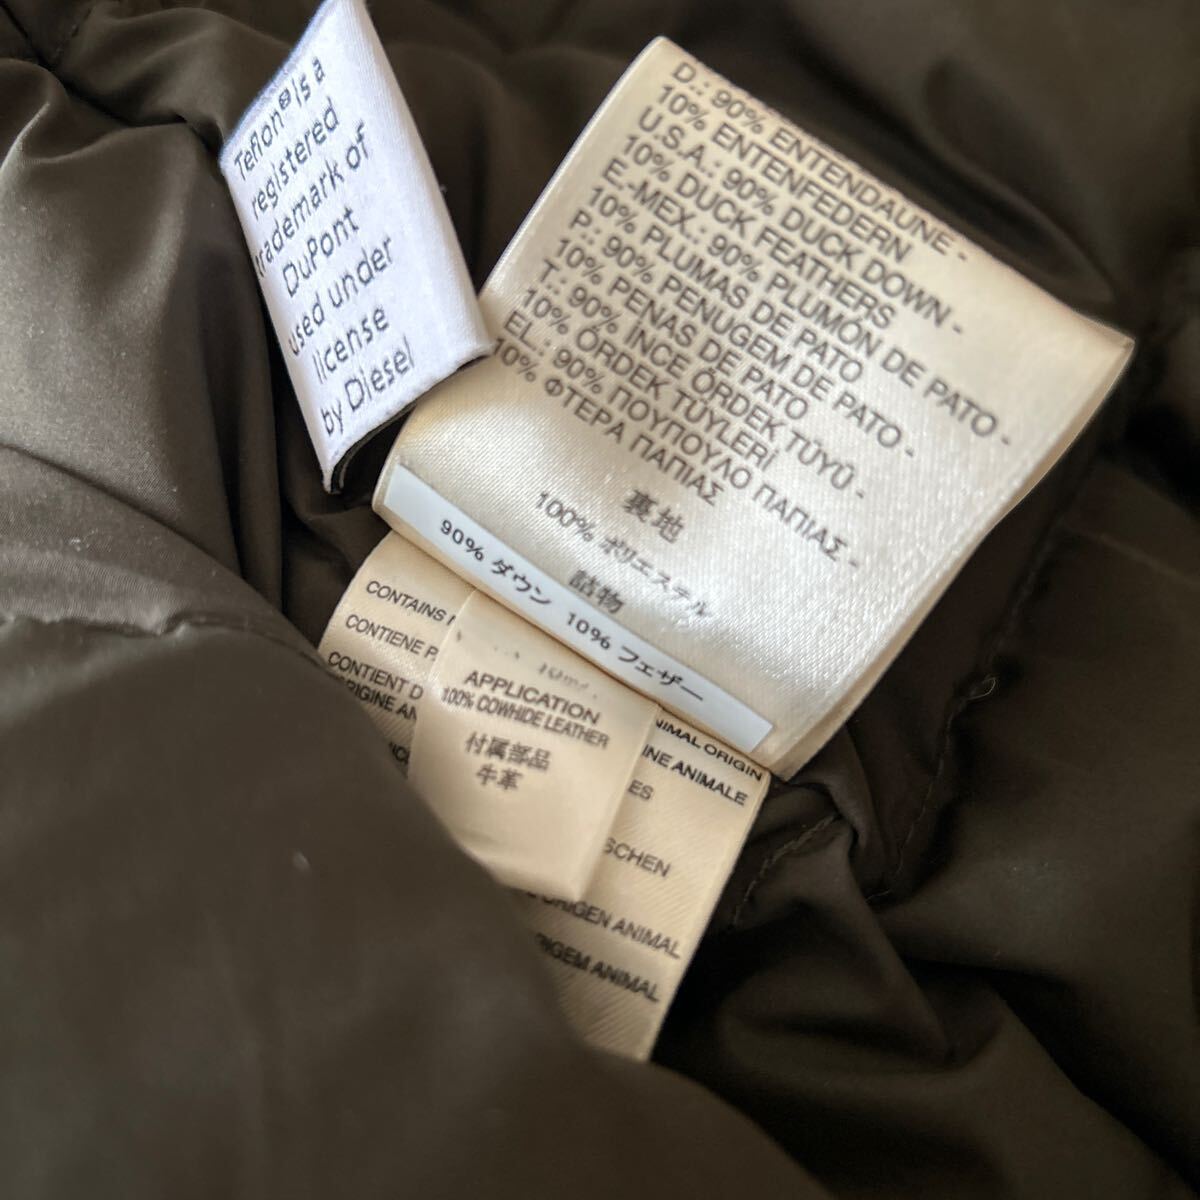 Teflon® is a
registered
trademark of
DuPont
used under
license
by Diesel
D.: 90% ENTENDAUNE -
10% ENTENFEDERN
U.S.A.: 90% DUCK DOWN -
10% DUCK FEATHERS
E-MEX.: 90% PLUMÓN DE PATO -
10% PLUMAS DE PATO
P.: 90% PENUGEM DE PATO -
10% PENAS DE PATO
T.: 90% İNCE ÖRDEK TÜYÜ -
10% ÖRDEK TÜYLERİ
EL.: 90% ΠΟΥΠΟΥΛΟ ΠΑΠΙΑΣ -
10% ΦΤΕΡΑ ΠΑΠΙΑΣ
裏地
100% ポリエステル
詰物
90% ダウン 10% フェザー
APPLICATION
100% COWHIDE LEATHER
付属部品
牛革
CONTAINS
CONTIENE
CONTIENT
ANIMAL ORIGIN
ANIMALE
ORIGEN ANIMAL
ANIMAL